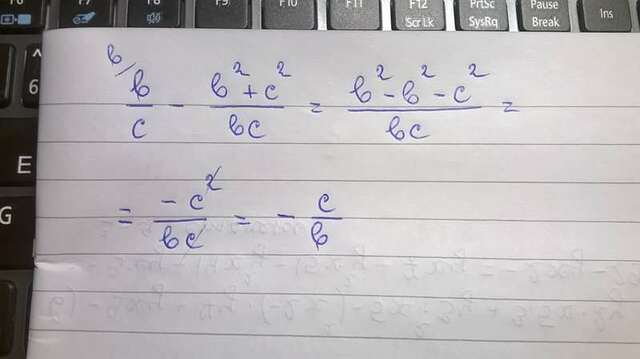 F6 F7 F8 F9 F10 F11 F12 ScrLk PrtSc SysRq Pause Break Ins
^ 6
E
G
b/ b/c - (b² + c²)/bc = (b² - b² - c²)/bc =
= -c²/bc = - c/b